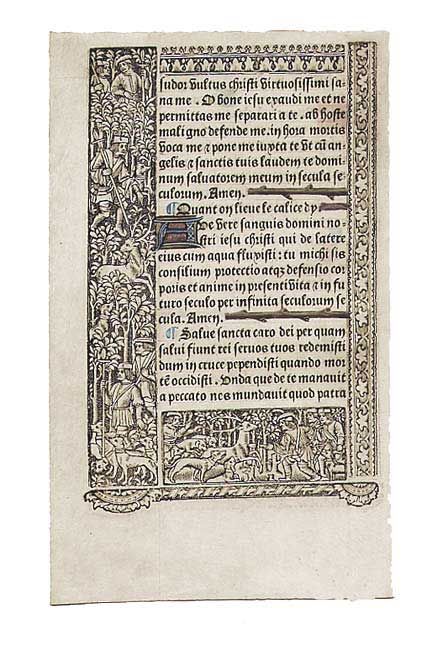 sudor vultus christi virtuosissimi sa-
na me . O bone iesu exaudi me et ne
permittas me separari a te . ab hoste
maligno defende me. in hora mortis
voca me ⁊ pone me iuxta te vt cū an-
gelis ⁊ sanctis tuis laudem te domi-
num saluatorem meum in secula se-
culorum. Amen.
¶ Quant on lieue le calice dy
AVe vere sanguis domini no-
stri iesu christi qui de latere
eius cum aqua fluxisti : tu michi sis
consilium protectio atqz defensio cor-
poris et anime in presenti vita ⁊ in fu-
turo seculo per infinita seculorum se-
cula. Amen.
¶ Salue sancta caro dei per quam
salui fiunt rei seruos tuos redemisti
dum in cruce pependisti quando mor-
tē occidisti . Vnda que de te manauit
a peccato nos mundauit quod patra